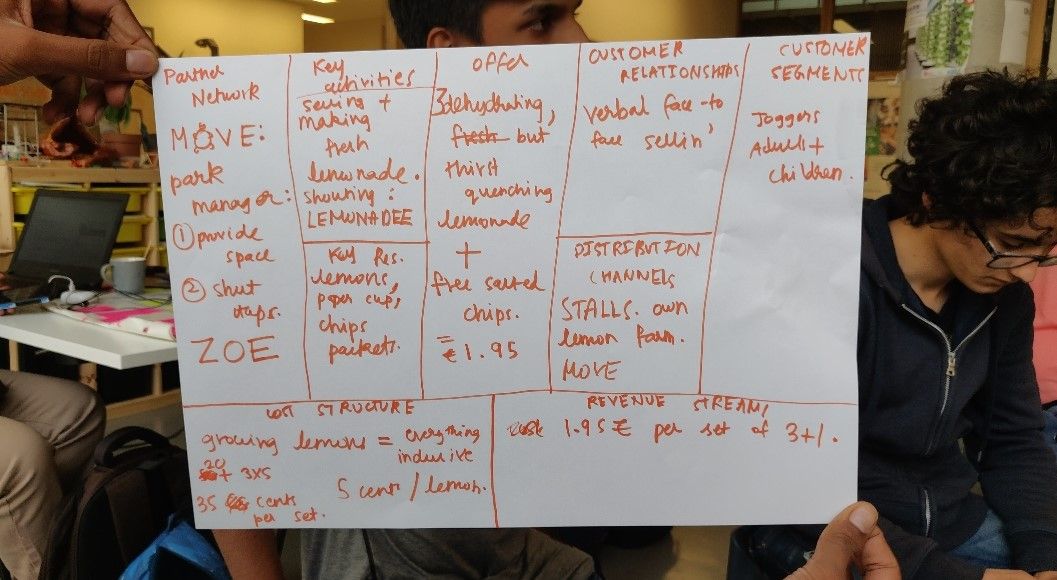 Partner
Network
MOVE:
park
manager:
① provide
space
② shut
taps.
ZOE
Key
activities
making
fresh
lemonade.
shouting:
LEMONADEE
Key Res.
lemons,
paper cups,
chips
packets.
Offer
3 dehydrating,
fresh but
thirst
quenching
lemonade
+
free salted
chips.
= € 1.95
CUSTOMER
RELATIONSHIPS
verbal face-to
face sellin'
DISTRIBUTION
CHANNELS
STALLS. own
lemon farm.
MOVE
CUSTOMER
SEGMENTS
Joggers
Adults +
children.
COST STRUCTURE
growing lemons = everything
inclusive
20 + 3x5
35 cents
per set.
5 cents / lemon.
REVENUE STREAMS
1.95 € per set of 3+1.